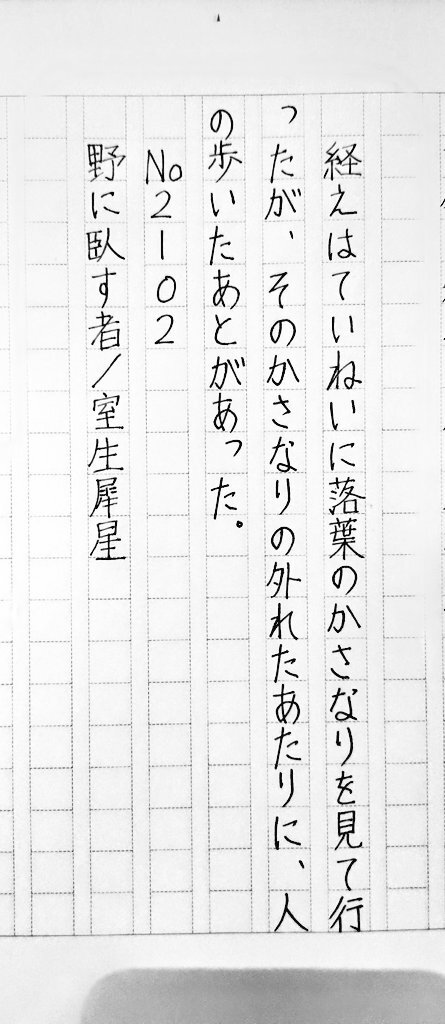 経えはていねいに落葉のかさなりを見て行
ったが、そのかさなりの外れたあたりに、人
の歩いたあとがあった。
No2102
野に臥す者/室生犀星